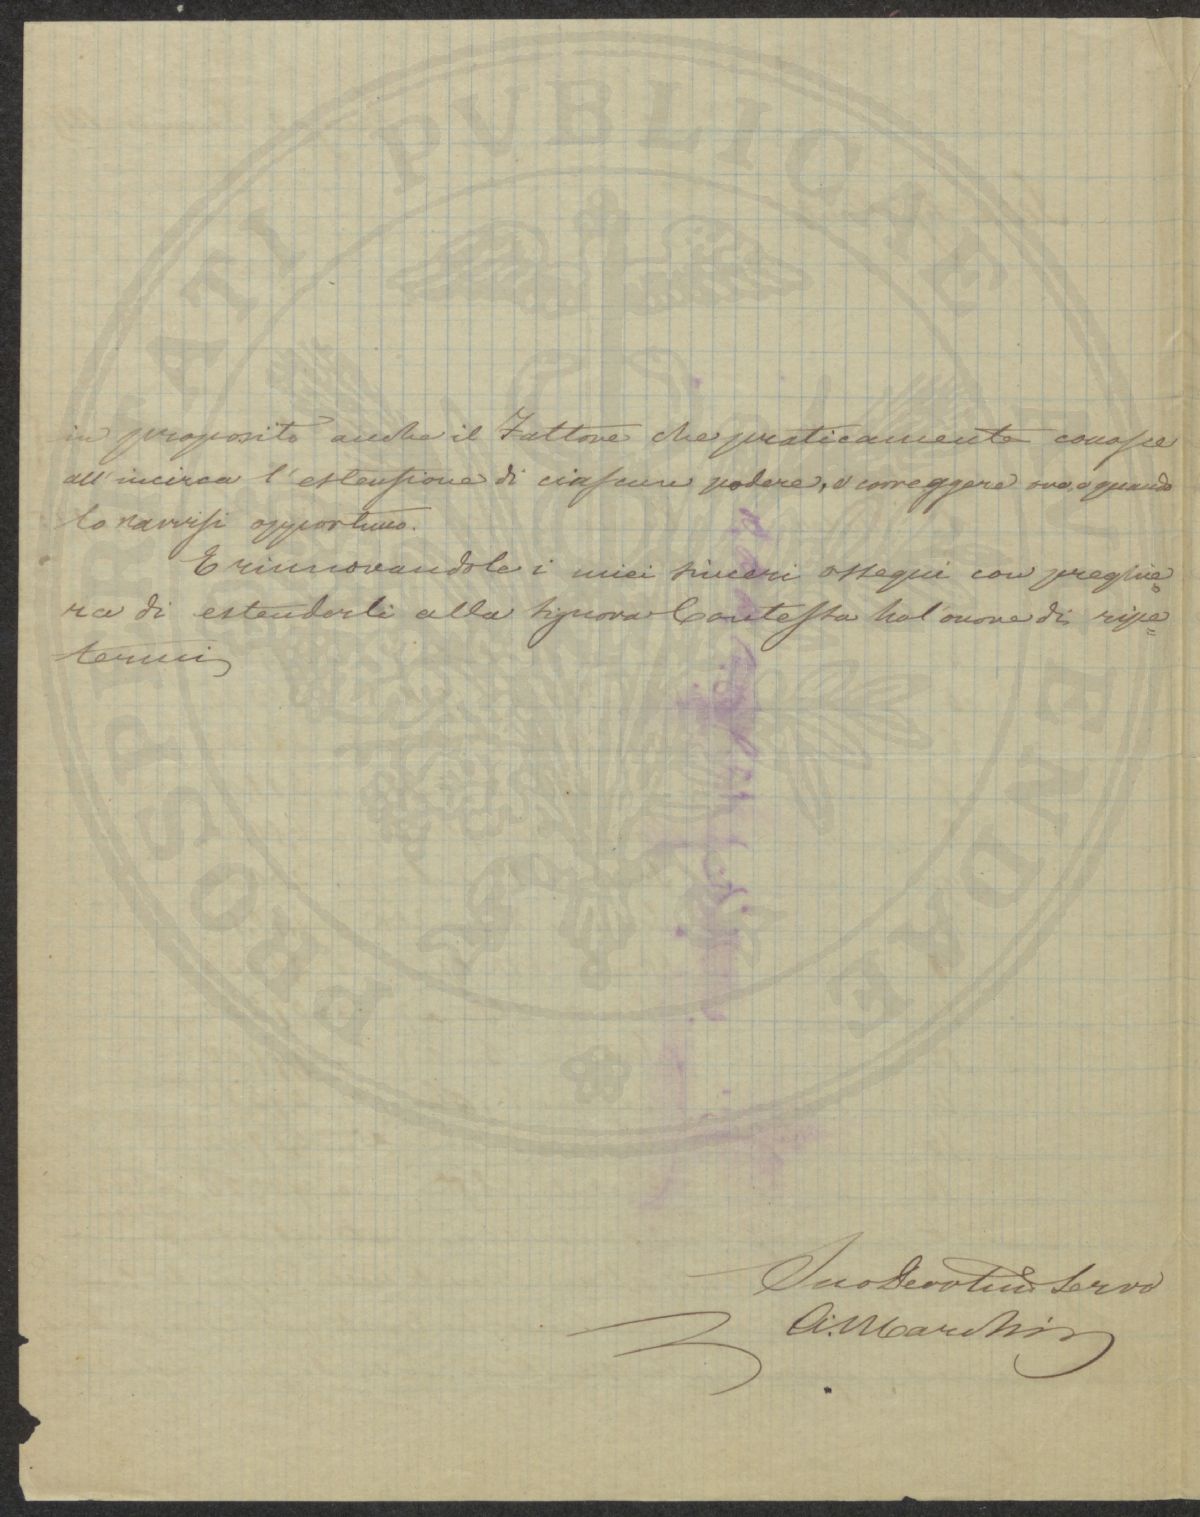 in proposito anche il Fattore che praticamente conosce
all'incirca l'estensione di ciascun podere, o correggere ove, o quando
lo ravvisi opportuno.
E rinnovandole i miei sinceri ossequi con preghie=
ra di estenderli alla Signora Contessa ho l'onore di ripe=
termi
Suo Devotmo Servo
PROSPERITATI PVBLICAE AVGENDAE